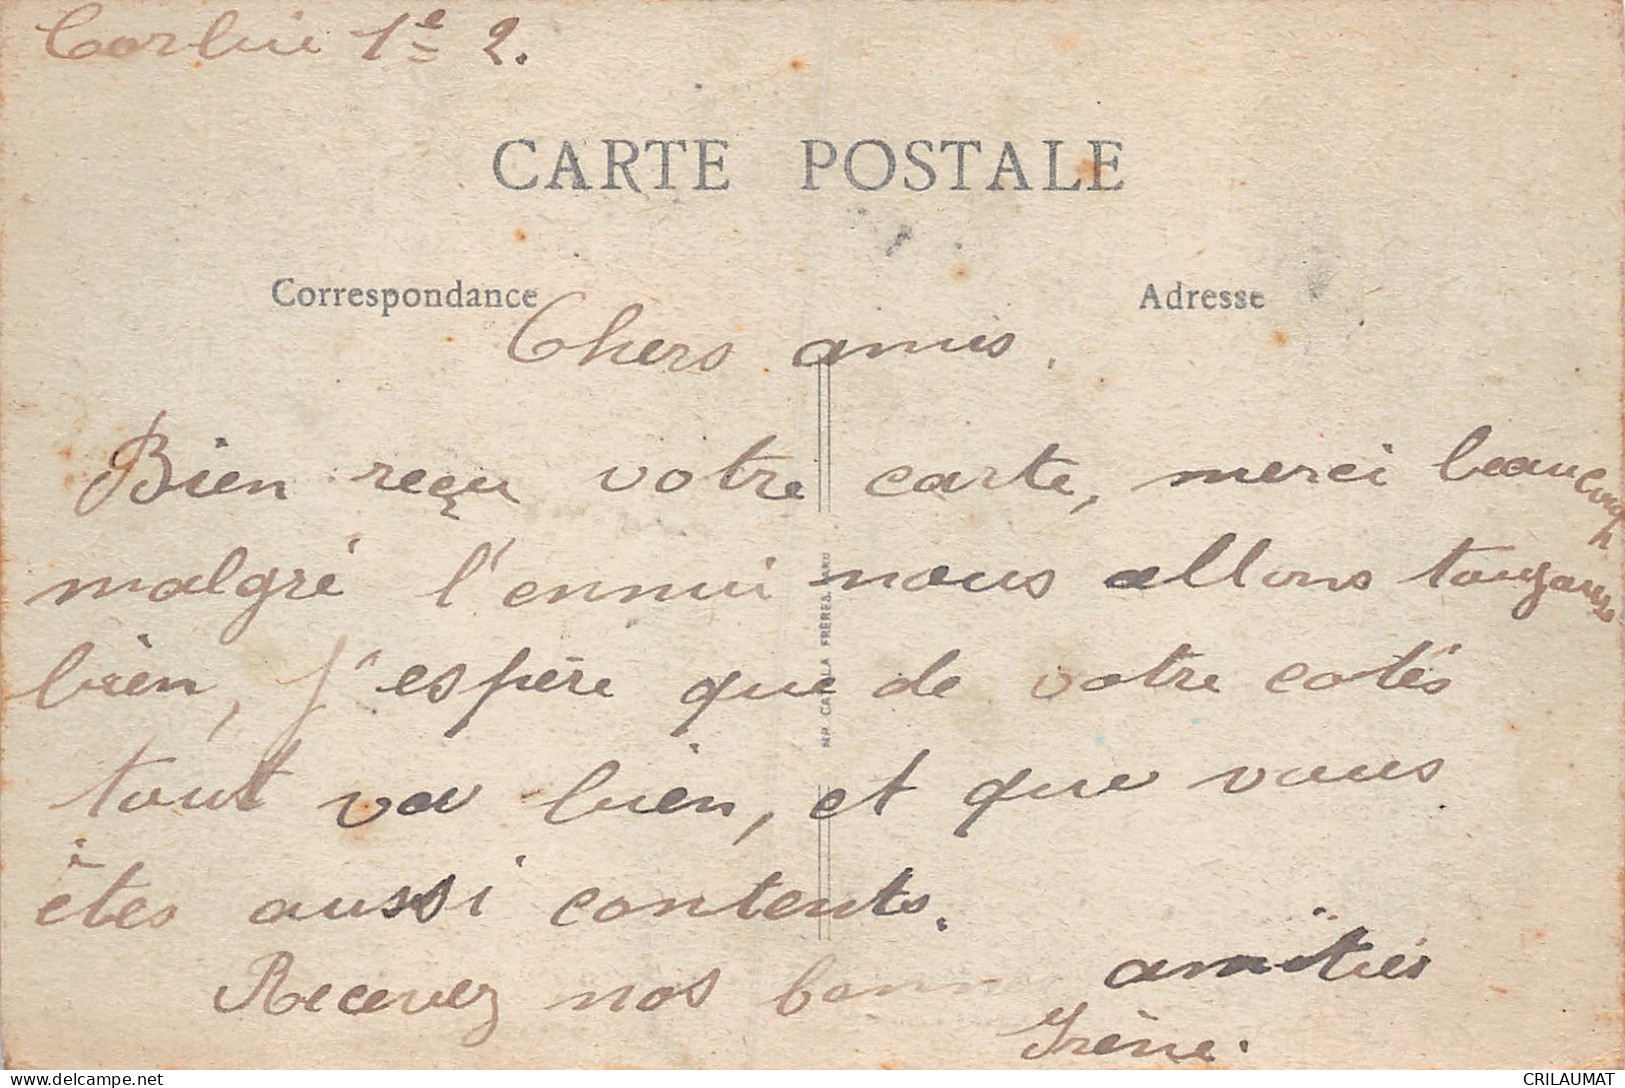 1e 2.
CARTE POSTALE
Correspondance
Adresse
Chers amis.
Bien reçu votre carte, merci beaucoup
malgré l'ennui nous allons toujours
bien, j'espère que de votre cotés
tout va bien, et que vous
êtes aussi contents.
Recevez nos amitiés
Irène.
FRÈRES,
delcampe.net
CRILAUMAT